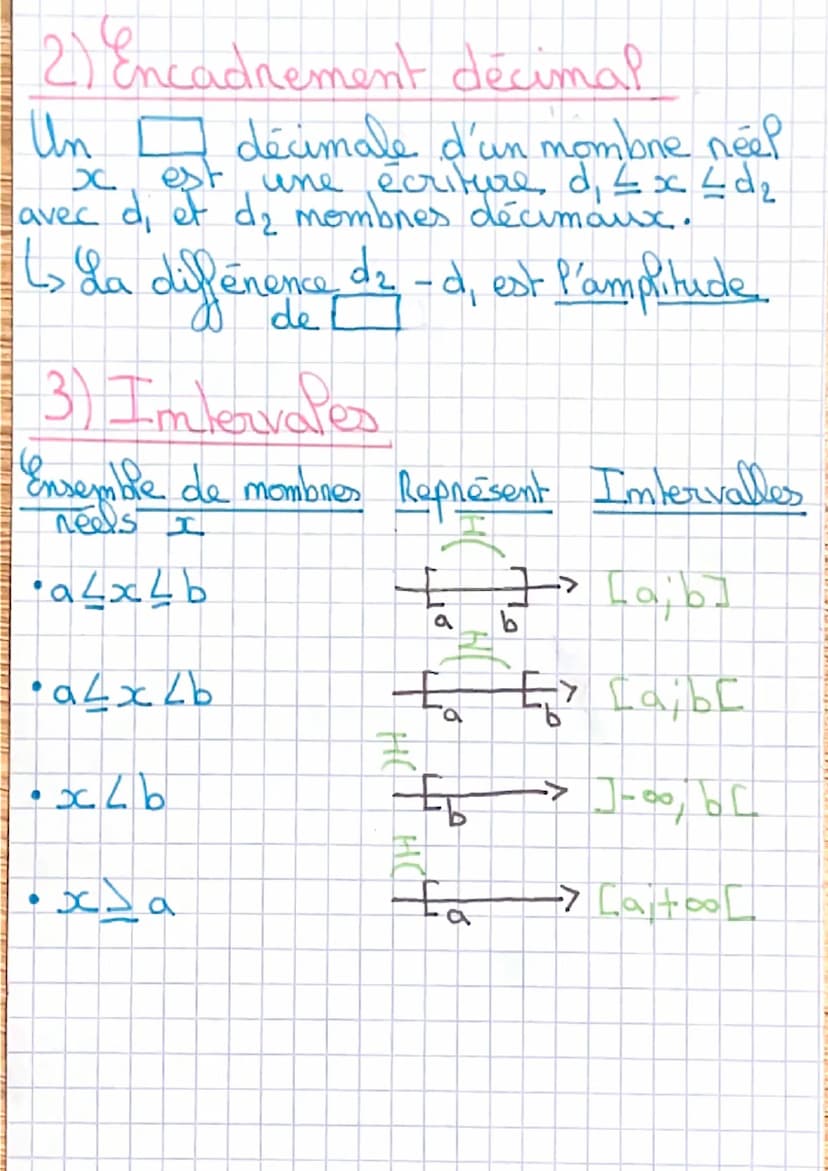 2) Encadrement décimal
Un □ décimale d'un nombre réel
x est une écriture d₁ ≤ x ≤ d₂
avec d₁ et d₂ nombres décimaux.
↳ La différence d₂ - d₁ est l'amplitude
de □
3) Intervales
Ensemble de nombres Représent Intervalles
réels x
I
• a ≤ x ≤ b [a;b]
a b
I
• a ≤ x < b [a;b[
a b
I
• x < b ]-∞;b[
b
I
• x ≥ a [a;+∞[
a